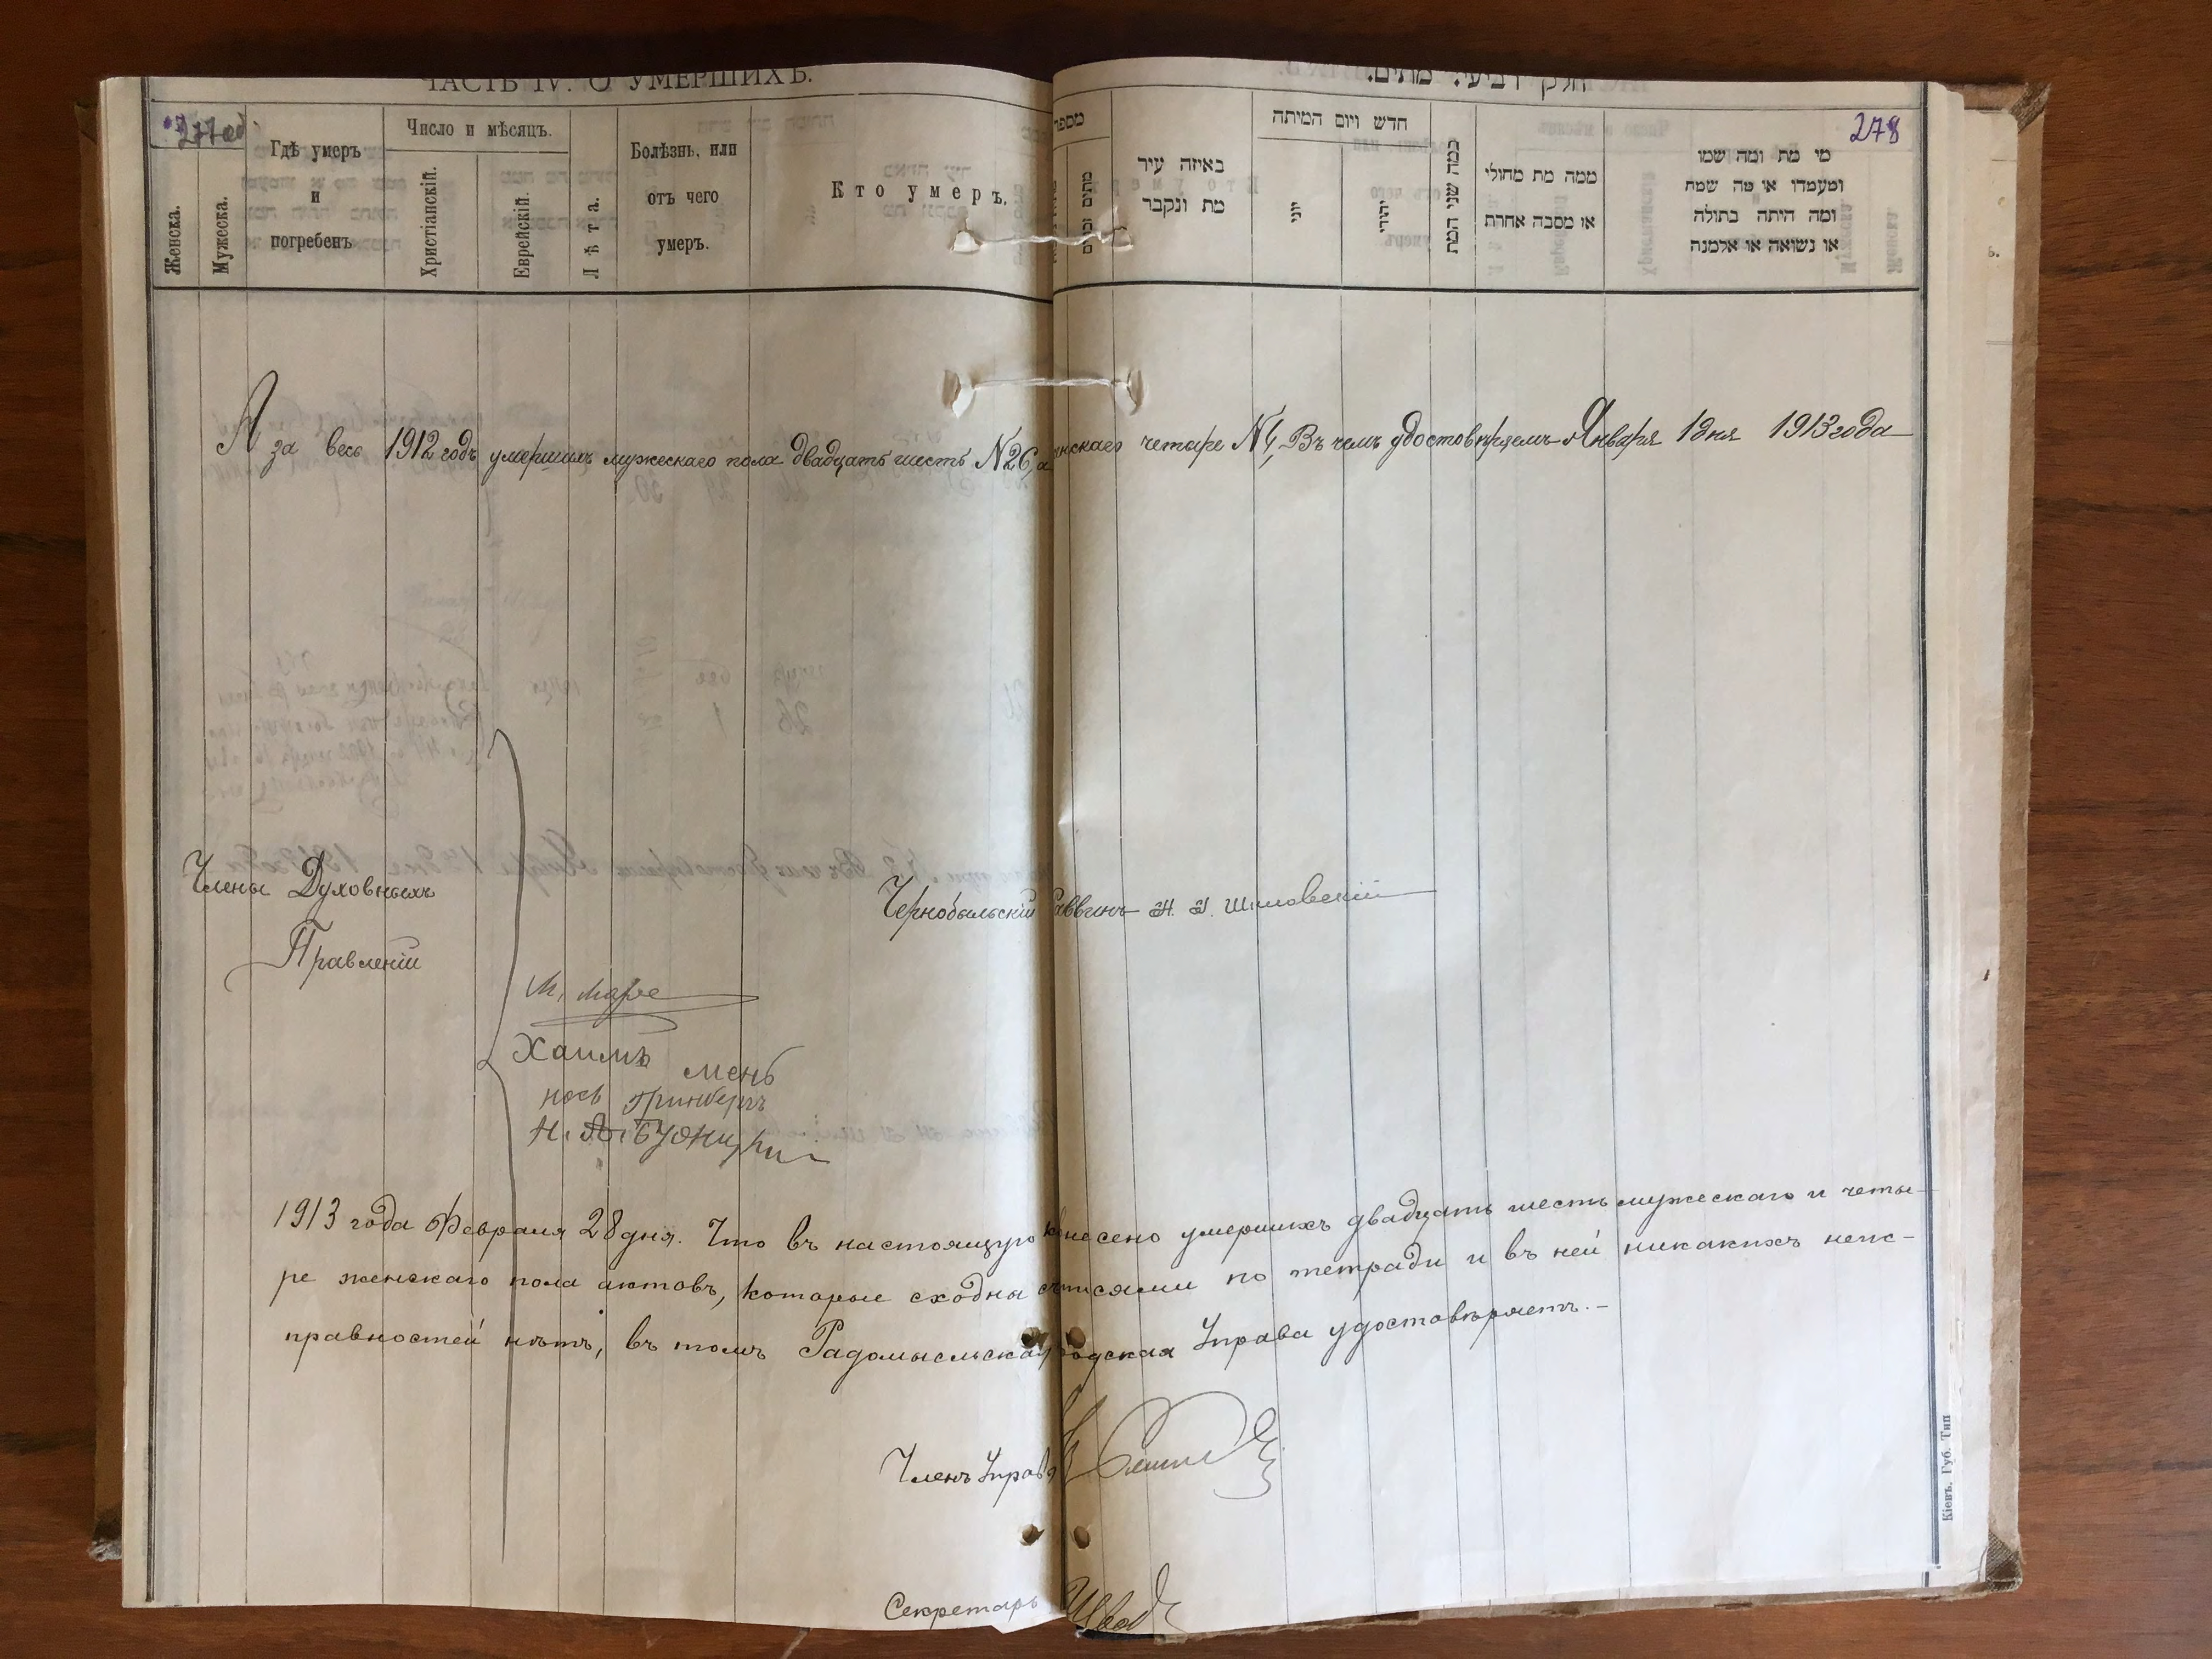 ЧАСТЬ IV. О УМЕРШИХЪ.
חלק רביעי. מתים.
278
Женска.
Мужеска.
Гдѣ умеръ
и
погребенъ
Число и мѣсяцъ.
Христіанскій.
Еврейскій.
Лѣта.
Болѣзнь, или
отъ чего
умеръ.
Кто умеръ.
מספר
באיזה עיר
מת ונקבר
חדש ויום המיתה
יוני
יהודי
כמה שני המת
ממה מת מחולי
או מסבה אחרת
מי מת ומה שמו
ומעמדו או מה שמה
ומה היתה בתולה
או נשואה או אלמנה
А за весь 1912 годъ умершихъ мужескаго пола двадцать шесть №26, а нскаго четыре №4, Въ чемъ удостовѣряемъ Января 1 дня 1913 года
Члены Духовныхъ
Правленіи
Чернобыльскій аввинъ
Хаимъ мень
нось Гринбергъ
1913 года Февраля 28 дня. Что въ настоящую несено умершихъ двадцать шесть мужескаго и четы-
ре женскаго пола актовъ, которые сходны писями по тетради и въ ней никакихъ неис-
правностей нѣтъ, въ томъ Радомысльская одская Управа удостовѣряетъ.-
Членъ Управ
Секретарь
Кіевъ. Губ. Тип